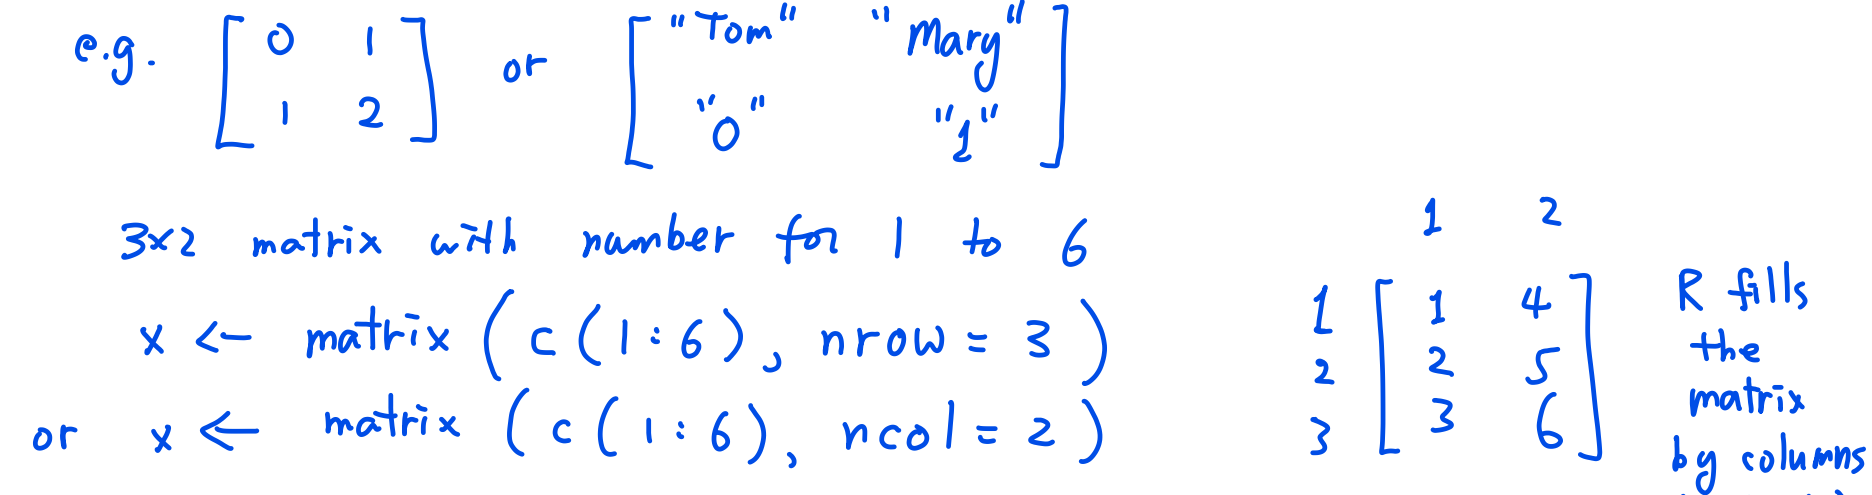 e.g. [ 0 1 or [ "Tom" "Mary" ]
1 2 ] "0" "1"
3×2 matrix with number for 1 to 6
x <- matrix ( c ( 1 : 6 ) , nrow = 3 )
or x <- matrix ( c ( 1 : 6 ) , ncol = 2 )
1 2
1 [ 1 4 ]
2 2 5
3 3 6
R fills
the
matrix
by columns